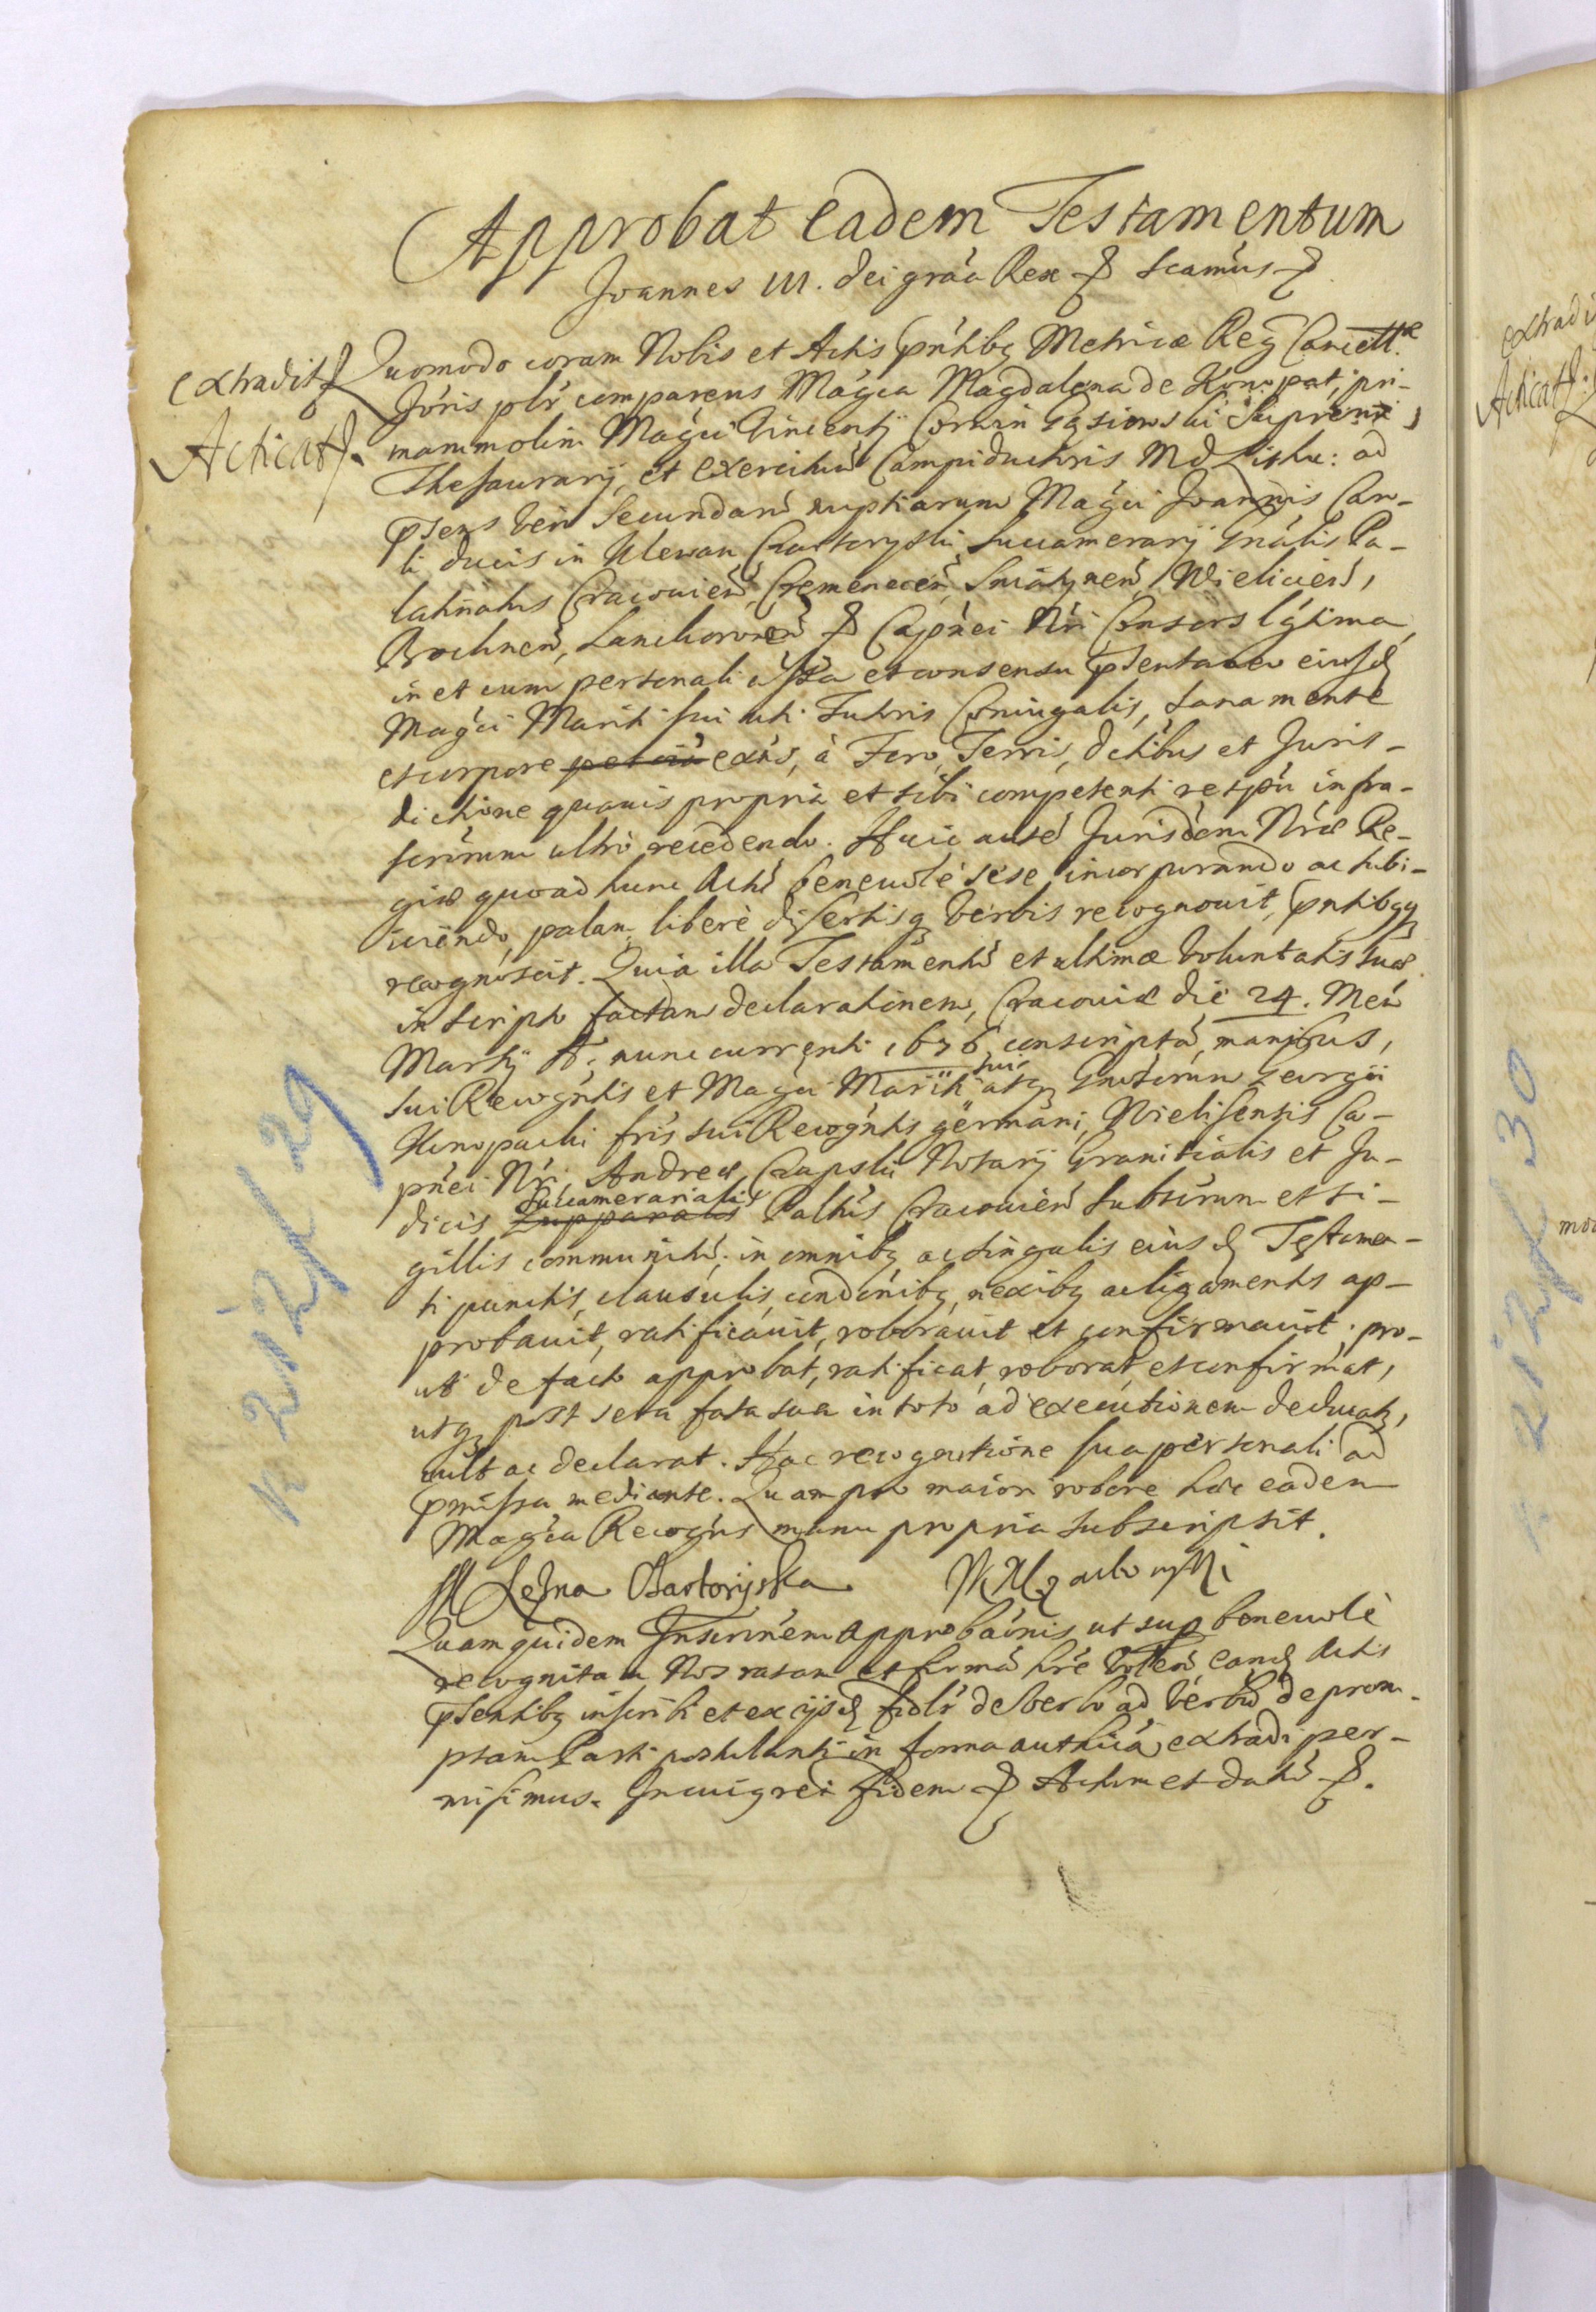 Approbat eadem Testamentum
Joannes III. Dei grãa Rex & Scamús &
extradit
Acticat
Quomodo coram Nobis et Actis pñtibq Metricæ Reg Cancell.æ
Jóris plr comparens Mágca Magdalena de Konopat, pri-
mammolim Mágci Vincentij Corvin Gąsiewski Supremi
Thesaurarij, et Exercituú Campiductoris M D Lithu: ad
pñens verò Secundarú nuptiarum Mágci Joannis Caro-
li Ducis in Klewan Czartoryski Succamerarij Gnális Pa-
latinatus Cracouień, Cremeneceń, Sniatyneń, Wielicień,
Bochneń, Lanckoroneń & Capnei Nri Consors lgtima,
in et cum personali assñtia et consensu pñsentaneo eiusd
Mágci Mariti sui uti Tutoris Coniugalis, sana mente
et corpore exñs, à Foro, Terris, Dctibus et Juris-
dictione quauis propria et sibi competenti respcu infra-
scriptorum ultro recedendo. Huic auté Jurisdom Nræ Re-
giæ quoad hunc Actú beneuolè sese incorporando ac subi-
iciendo, palam liberè disertisq verbis recognouit, pñtibqq
recognoscit. Quia illa Testamentú et ultimæ voluntatis suæ
in scripto factam declarationem, Cracouiæ die 24. Meń
Martij A, nunc currenti 1676 conscriptá, manibus,
sui Recogñtis et Mágci Mariti sui atq Gnosorum Georgii
Konopacki fris sui Recogñtis germáni, Wielisensis Ca-
pnei Nri, Andreæ Czapski Notarij Granitialis et Ju-
dicis Succamerarialis Paltús Cracouień subscrúm et si-
gillis communitú; in omnibq ac singulis eiusd Testamen-
ti punctis, clausulis, condcnibq, nexibq ac ligamentis ap-
probauit, ratificáuit, roboráuit et confirmauit; pro-
ut de facto approbat, ratificat, roborat, et confirmat,
utq post sera fata sua in toto ad executionem deducatr,
uult ac declarat. Hac recognitione sua personali ad
pmissa mediante. Quam pro maiori robore hæc eadem
Mágca Recogñs manu propria subscripsit.
M Leżna Czartoryska
Quam quidem Inscrinem approbaónis ut sup beneuolè
recognitam Nos ratam et firmá hre volen, eand Actis
pñsentibq inscribi et ex ijsd fidlr de verbo ad verbú deprom-
ptam Parti postulanti in forma authica extradi per-
misimus. In cuig rei fidem & Actum et datú &.